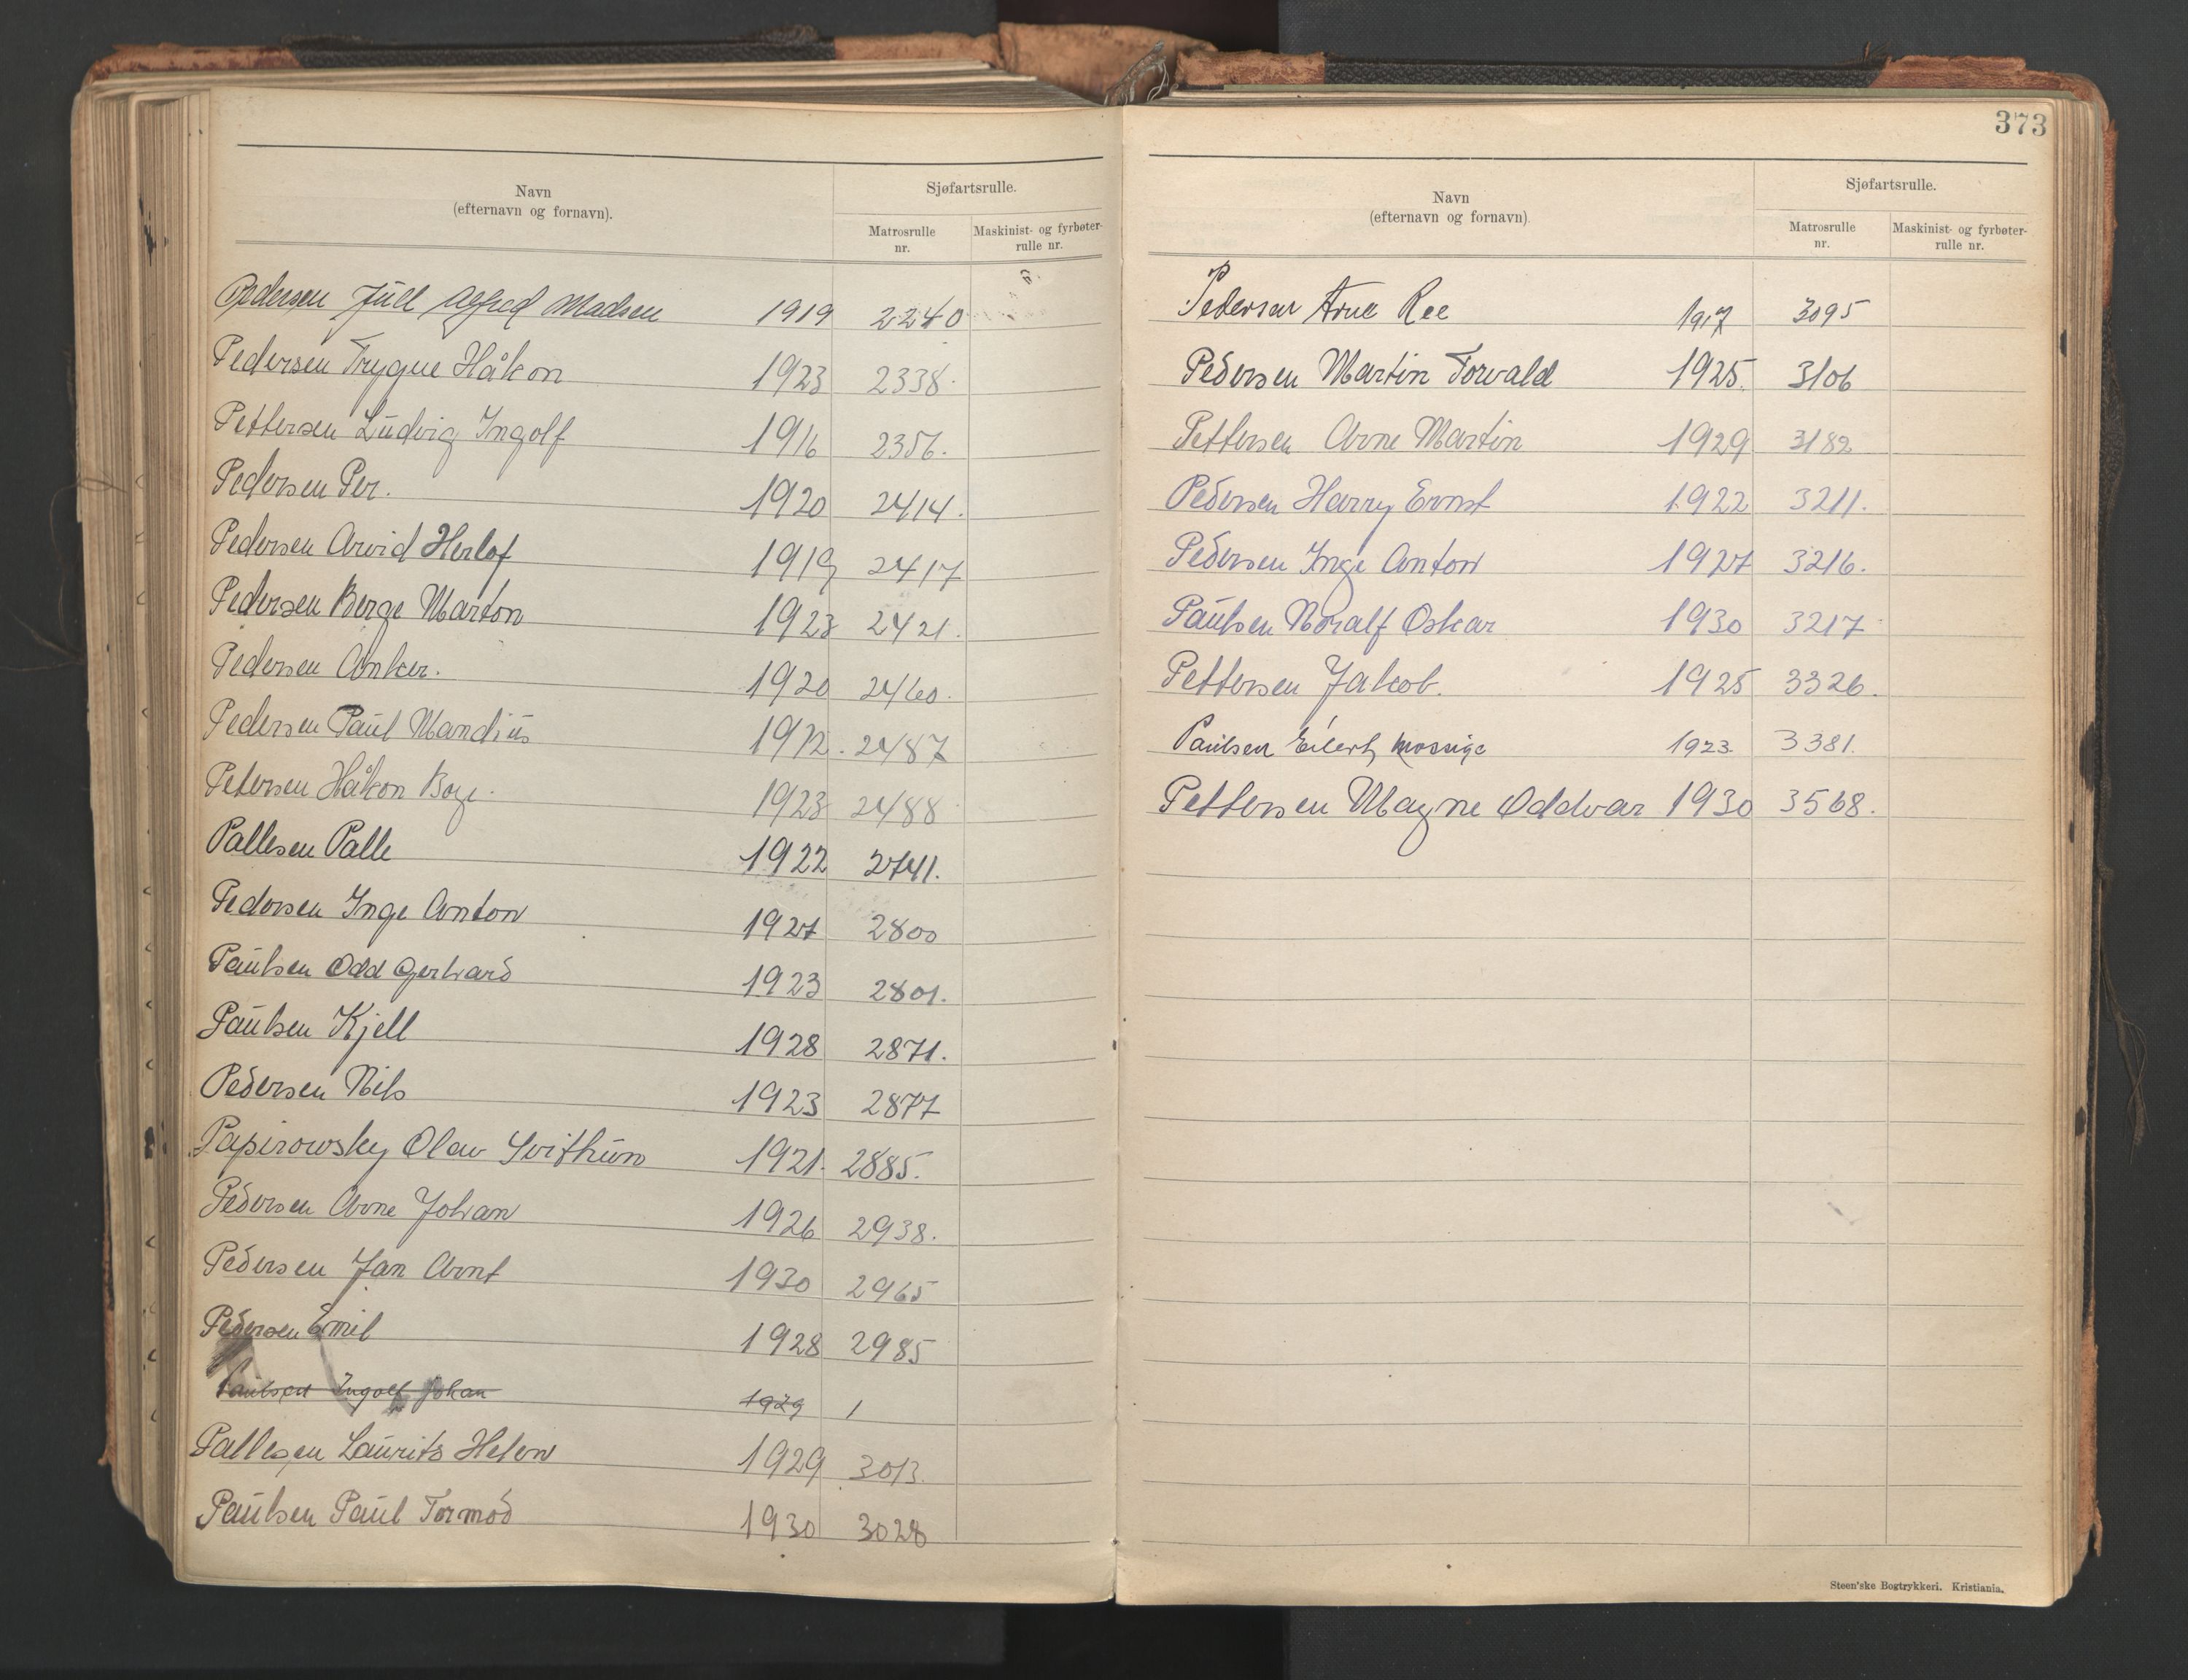 Navn
(efternavn og fornavn).
Sjøfartsrulle.
Matrosrulle
nr.
Maskinist- og fyrbøter-
rulle nr.
Pedersen Juel Alfred Madsen 1919 2240
Pedersen Trygve Håkon 1923 2338.
Pettersen Ludvig Ingolf 1916 2356.
Pedersen Per. 1920 2414.
Pedersen Arvid Herlof 1919 2417
Pedersen Berge Marton 1923 2421.
Pedersen Anker. 1920 2460.
Pedersen Paul Mandius 1912. 2487
Petersen Håkon 1923 2488
Pallesen Palle 1922 2741.
Pedersen Inge Anton 1927 2800
Paulsen Odd Gerhard 1923 2801.
Paulsen Kjell 1928 2871.
Pedersen Nils 1923 2877
Papirowsky Olav Svithun 1921. 2885.
Pedersen Arne Johan 1926 2938.
Pedersen Jan Arnt 1930 2965
Pedersen Emil 1928 2985
Paulsen Ingolf Johan 1929 1
Pallesen Laurits 1929 3013.
Paulsen Paul Tormod 1930 3028
373
Navn
(efternavn og fornavn)
Sjøfartsrulle.
Matrosrulle
nr.
Maskinist- og fyrbøter-
rulle nr.
Pedersen Arne Ree 1917 3095
Pedersen Martin Torvald 1925. 3106
Pettersen Arne Martin 1929 3182
Pedersen Harry Ernst 1922 3211.
Pedersen Inge Anton 1927 3216.
Paulsen Noralf Oskar 1930 3217
Pettersen Jakob. 1925 3326.
Paulsen Eilert Mossige 1923. 3381.
Pettersen Magne Oddvar 1930 3568.
Steen'ske Bogtrykkeri. Kristiania.